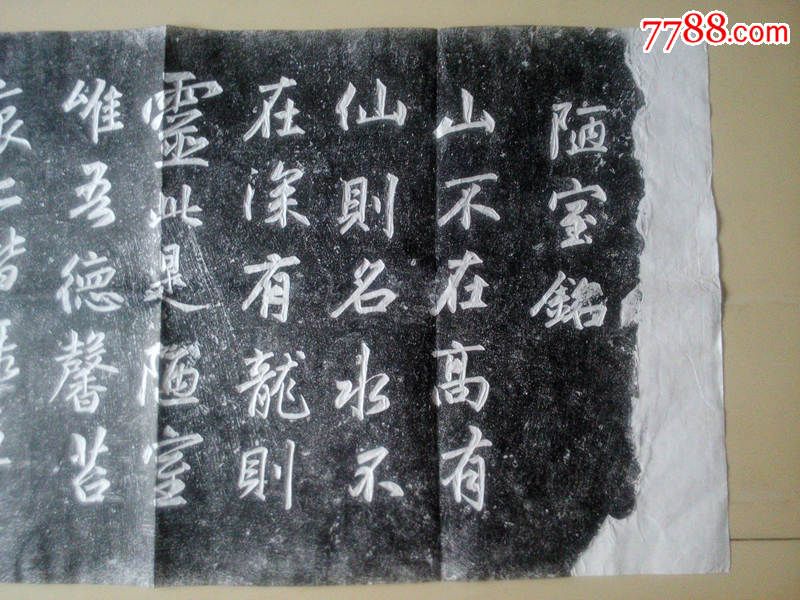 7788.com
陋室銘
山不在高有
仙則名水不
在深有龍則
靈此是陋室
唯吾德馨苔
痕上階